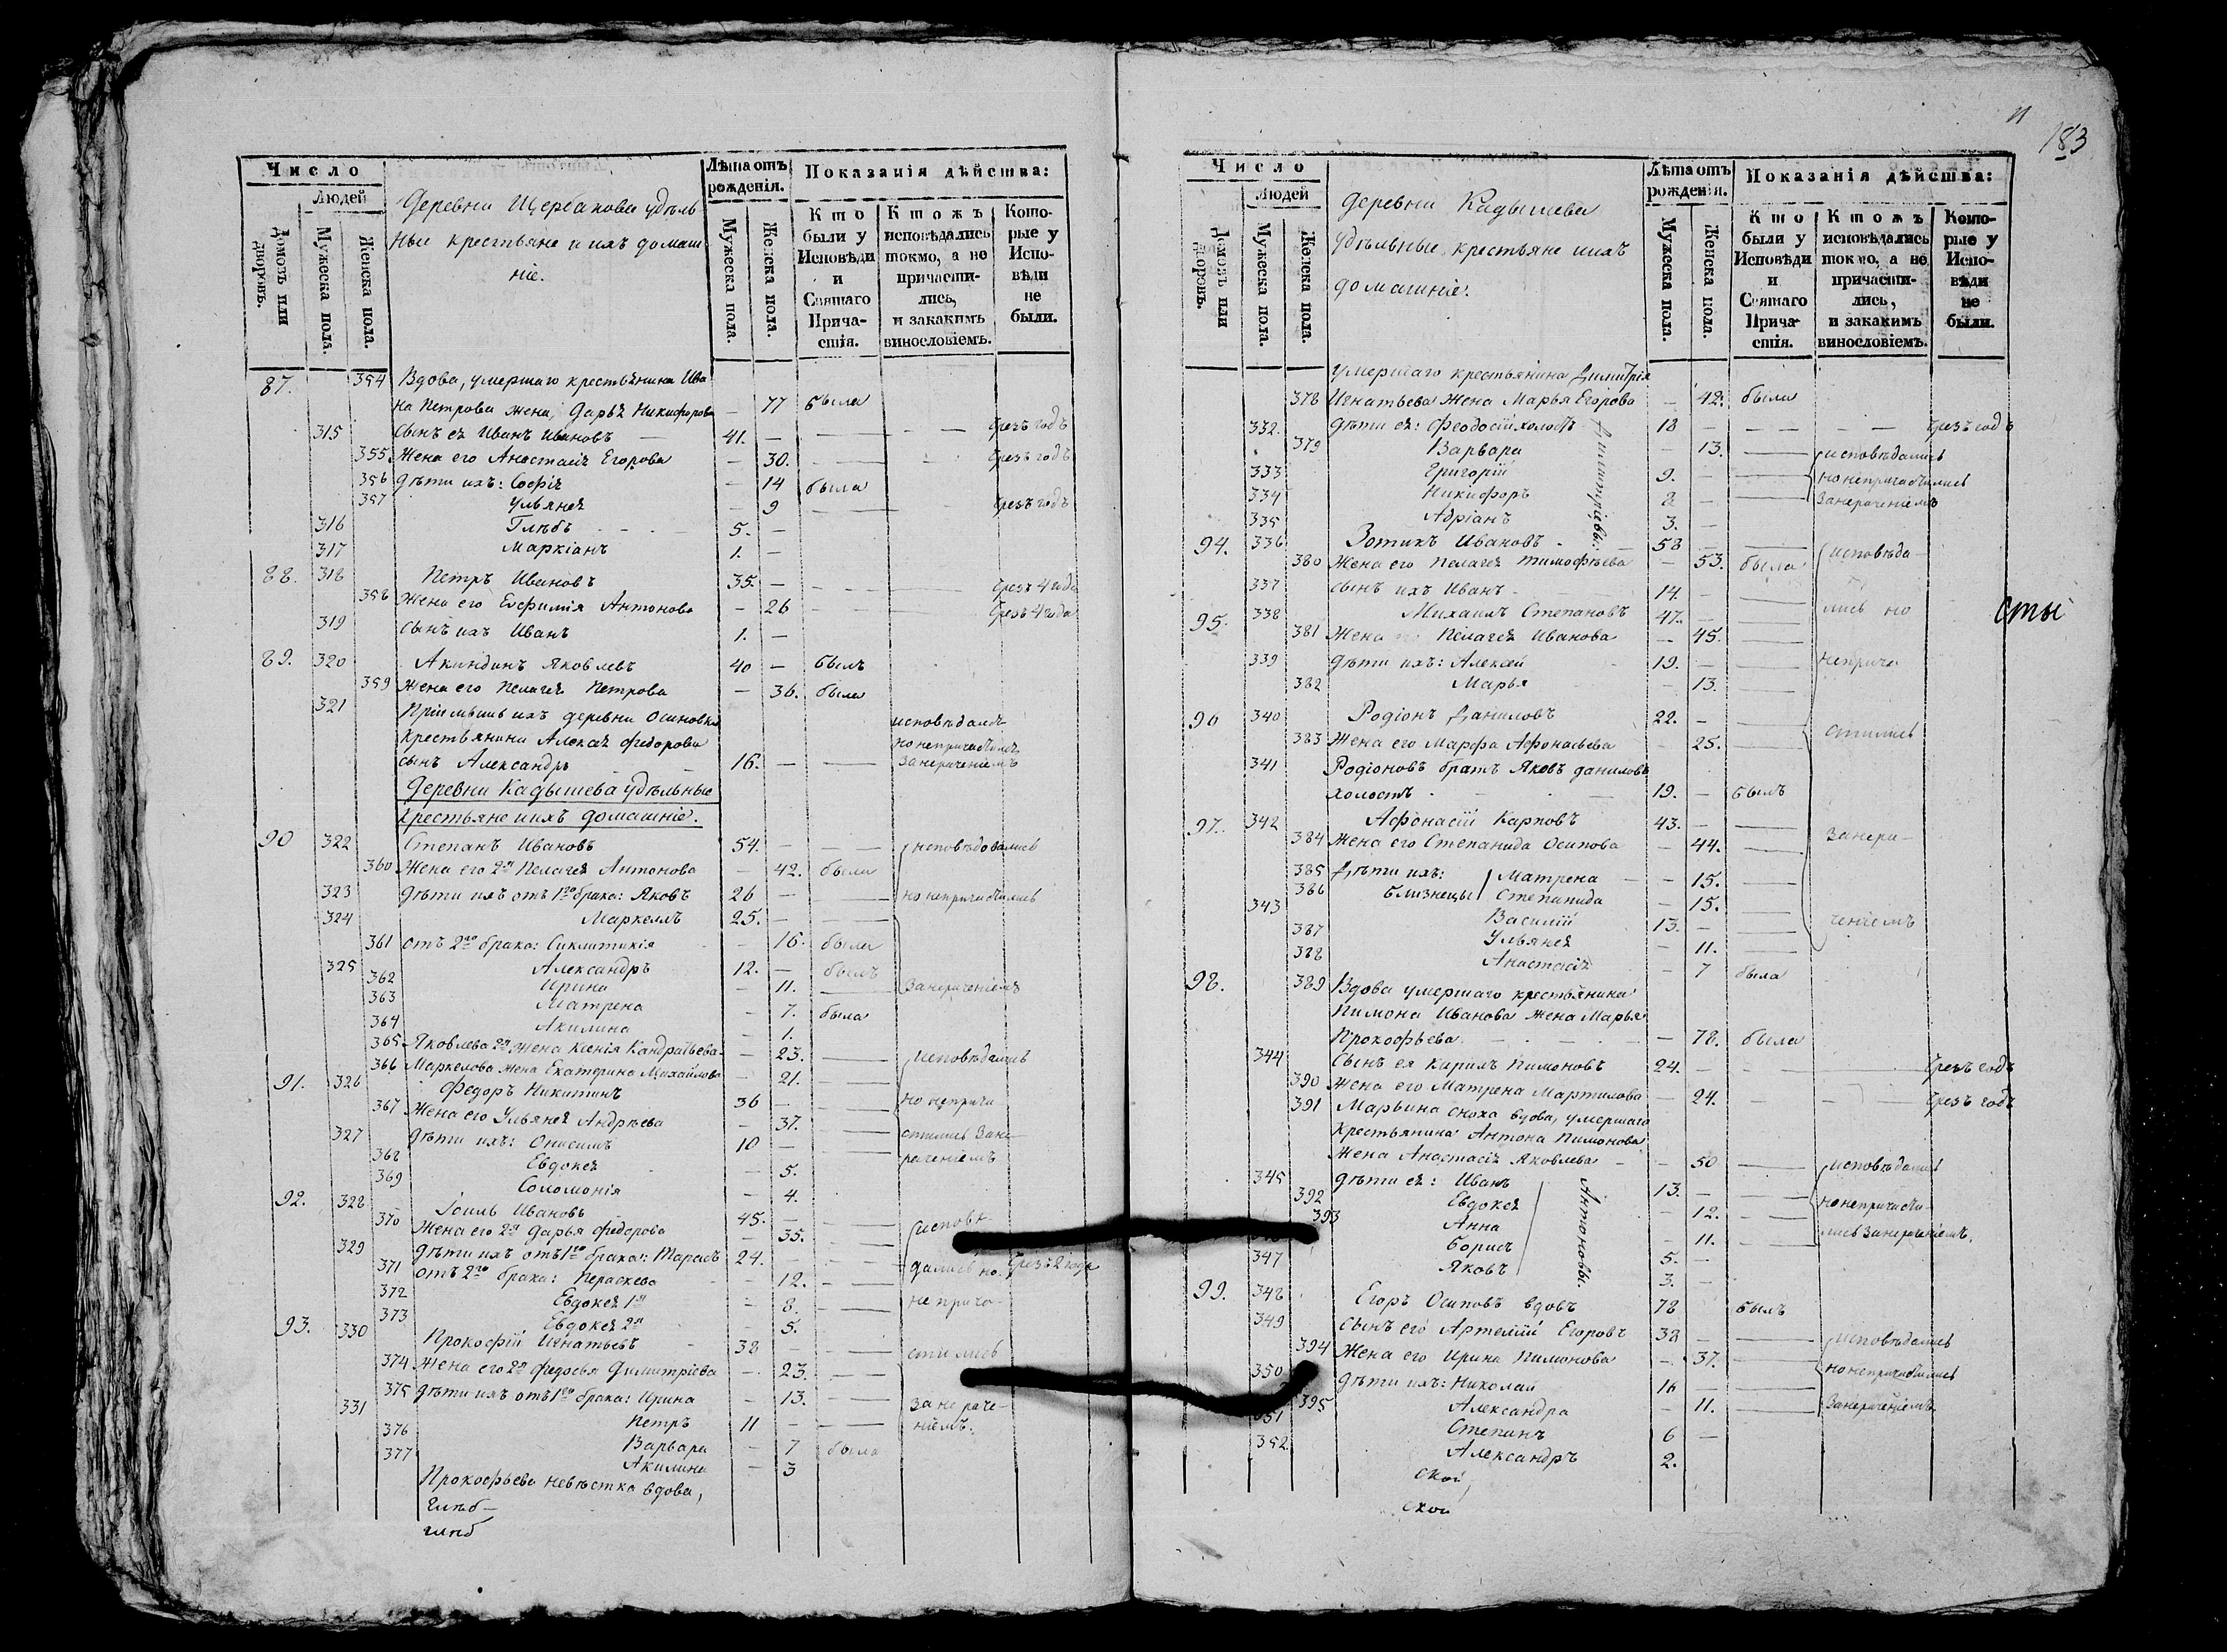 Число
Людей
Домовъ или дворовъ.
Мужеска пола.
Женска пола.
Деревни Щербакова удѣль
ные крестьяне и ихъ домаш
ніе.
Лѣта отъ рожденія.
Мужеска пола.
Женска пола.
Показанія дѣйства:
Кто были у Исповѣди и Святаго Причастія.
Ктожъ исповѣдались токмо, а не причастились, и закакимъ винословіемъ.
Которые у Исповѣди не были.
87. 354 Вдова, умершаго крестьянина Ива
на Петрова жена, Дарья Никифорова — 77 была
315 сынъ ея Иванъ Ивановъ 41. — чрезъ годъ
355 Жена его Анастасія Егорова — 30. чрезъ годъ
356 дѣти ихъ: Софія — 14 была
357 Ульянея — 9 чрезъ годъ
316 Глѣбъ 5. —
317 Маркіанъ 1. —
88. 318 Петръ Ивановъ 35. — чрезъ 4 года
358 Жена его Евфимія Антонова — 26 чрезъ 4 года
319 сынъ ихъ Иванъ 1. —
89. 320 Акиндинъ Яковлевъ 40 — былъ
359 Жена его Пелагея Петрова — 36. была
321 Пріемышъ ихъ деревни Осиновки
крестьянина Алексея Федорова исповѣдался
сынъ Александръ 16. — но непричастился занераченіемъ
Деревни Кадышева удѣльные
крестьяне и ихъ домашніе.
90 322 Степанъ Ивановъ 54. — исповѣдовались
360 Жена его 2я Пелагея Антонова — 42. была
323 дѣти ихъ отъ 1го брака: Яковъ 26 — но непричастились
324 Маркеллъ 25. —
361 отъ 2го брака: Синклитикія — 16. была
325 Александръ 12. — былъ
362 Ирина — 11. занераченіемъ
363 Матрена — 7. была
364 Акилина — 1.
365 Яковлева 2я жена Ксенія Кандратьева — 23. исповѣдались
366 Маркелова жена Екатерина Михайлова — 21.
91. 326 Федоръ Никитинъ 36 — но неприча
367 Жена его Ульянея Андрѣева — 37.
327 дѣти ихъ: Онисимъ 10 — стились зане
368 Евдокея — 5. раченіемъ
369 Соломонія — 4.
92. 328 Іоиль Ивановъ 45. —
370 Жена его 2я Дарья Федорова — 35. исповѣ
329 дѣти ихъ отъ 1го брака: Тарасъ 24. — дались но чрезъ 2 года
371 отъ 2го брака: Параскева — 12.
372 Евдокея 1я — 8. не прича
373 Евдокея 2я — 5.
93. 330 Прокофій Игнатьевъ 38 — стились
374 Жена его 2я Федосья Димитріева — 23.
375 дѣти ихъ отъ 1го брака: Ирина — 13. за не раче-
331 Петръ 11 — ніемъ.
376 Варвара — 7 была
377 Акилина — 3
Прокофьева невѣстка вдова,
Глѣб-
глѣб
183
Число
Людей
Домовъ или дворовъ.
Мужеска пола.
Женска пола.
Деревни Кадышева
удѣльные крестьяне ихъ
домашніе.
Лѣта отъ рожденія.
Мужеска пола.
Женска пола.
Показанія дѣйства:
Кто были у Исповѣди и Святаго Причастія.
Ктожъ исповѣдались токмо, а не причастились, и закакимъ винословіемъ.
Которые у Исповѣди не были.
умершаго крестьянина Димитрія
378 Игнатьева жена Марья Егорова — 42. была
332. дѣти ея: Феодосій холостъ 18 — чрезъ годъ
379 Варвара — 13. исповѣдались
333 Григорій 9. — но непричастились
334 Никифоръ 8 — занераченіемъ
335 Адріанъ 3. —
Димитріевы:
94. 336 Зотикъ Ивановъ 58 — исповѣда
380 Жена его Пелагея Тимофѣева — 53. была
337 сынъ ихъ Иванъ 14. —
95. 338 Михаилъ Степановъ 47. — лись но
сты
381 Жена его Пелагея Иванова — 45.
339 дѣти ихъ: Алексѣй 19. — неприча
382 Марья — 13.
96 340 Родіонъ Даниловъ 22. — стились
383 Жена его Марфа Афонасьева — 25.
341 Родіоновъ братъ Яковъ Даниловъ
холостъ 19. — былъ
97. 342 Афонасій Карповъ 43. — занера-
384 Жена его Степанида Осипова — 44.
385 Дѣти ихъ: Матрена — 15.
386 близнецы Степанида — 15.
343 Василій 13. — ченіемъ
387 Ульянея — 11.
388 Анастасія — 7 была
98. 389 Вдова умершаго крестьянина
Пимона Иванова жена Марья
Прокофьева — 78. была
344 Сынъ ея Кирилъ Пимоновъ 24. — чрезъ годъ
390 Жена его Матрена Мартинова — 24. чрезъ годъ
391 Марьина сноха вдова, умершаго
крестьянина Антона Пимонова
жена Анастасія Яковлева — 50 исповѣдались
345 дѣти ея: Иванъ 13. —
392 Евдокея — 12. но непричасти-
393 Анна — 11. лись занераченіемъ.
Борисъ 5. —
347 Яковъ 3. —
Антоновы.
99. 348 Егоръ Осиповъ вдовъ 78 былъ
349 Сынъ его Артемій Егоровъ 38 — исповѣдались
394 Жена его Ирина Пимонова — 37. но непричастились
350 дѣти ихъ: Николай 16 —
395 Александра — 11. занераченіемъ
351 Степанъ 6 —
352 Александръ 2.
ской,
ской